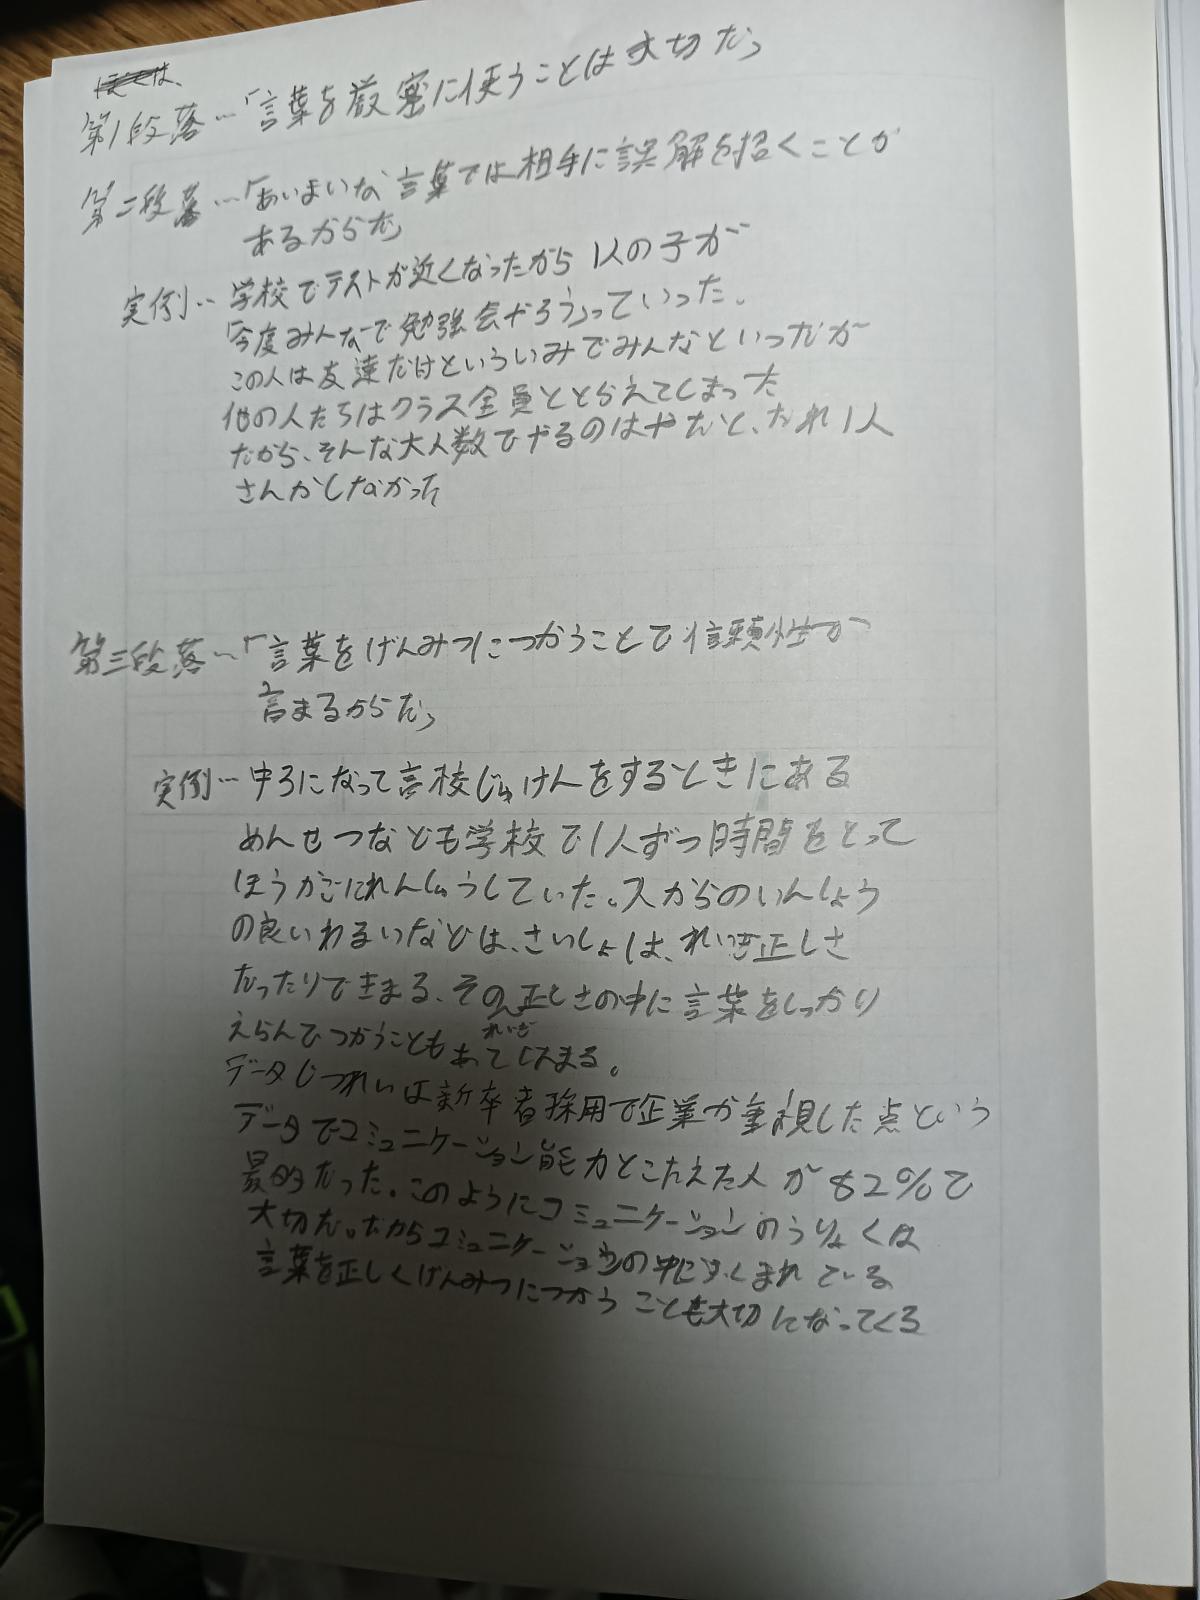 第1段落…「言葉を厳密に使うことは大切だ」
第二段落…「あいまいな言葉では相手に誤解を招くことが
あるからだ」
実例… 学校でテストが近くなったから 1人の子が
「今度みんなで勉強会やろう」っていった。
この人は友達だけといういみでみんなといったが
他の人たちはクラス全員ととらえてしまった
だから、そんな大人数でやるのはやだと、だれ1人
さんかしなかった
第三段落…「言葉をげんみつにつかうことで信頼性が
高まるからだ」
実例… 中3になって高校じゅけんをするときにある
めんせつなども学校で1人ずつ時間をとって
ほうかごにれんしゅうしていた。人からのいんしょう
の良いわるいなどは、さいしょは、れいぎ正しさ
だったりできまる、その正しさの中に言葉をしっかり
れいぎ
えらんでつかうこともあてはまる。
データじつれいは新卒者採用で企業が重視した点という
データでコミュニケーション能力とこたえた人が82%で
最多だった。このようにコミュニケーションのうりょくは
大切だ。だからコミュニケーションの中にふくまれている
言葉を正しくげんみつにつかうことも大切になってくる